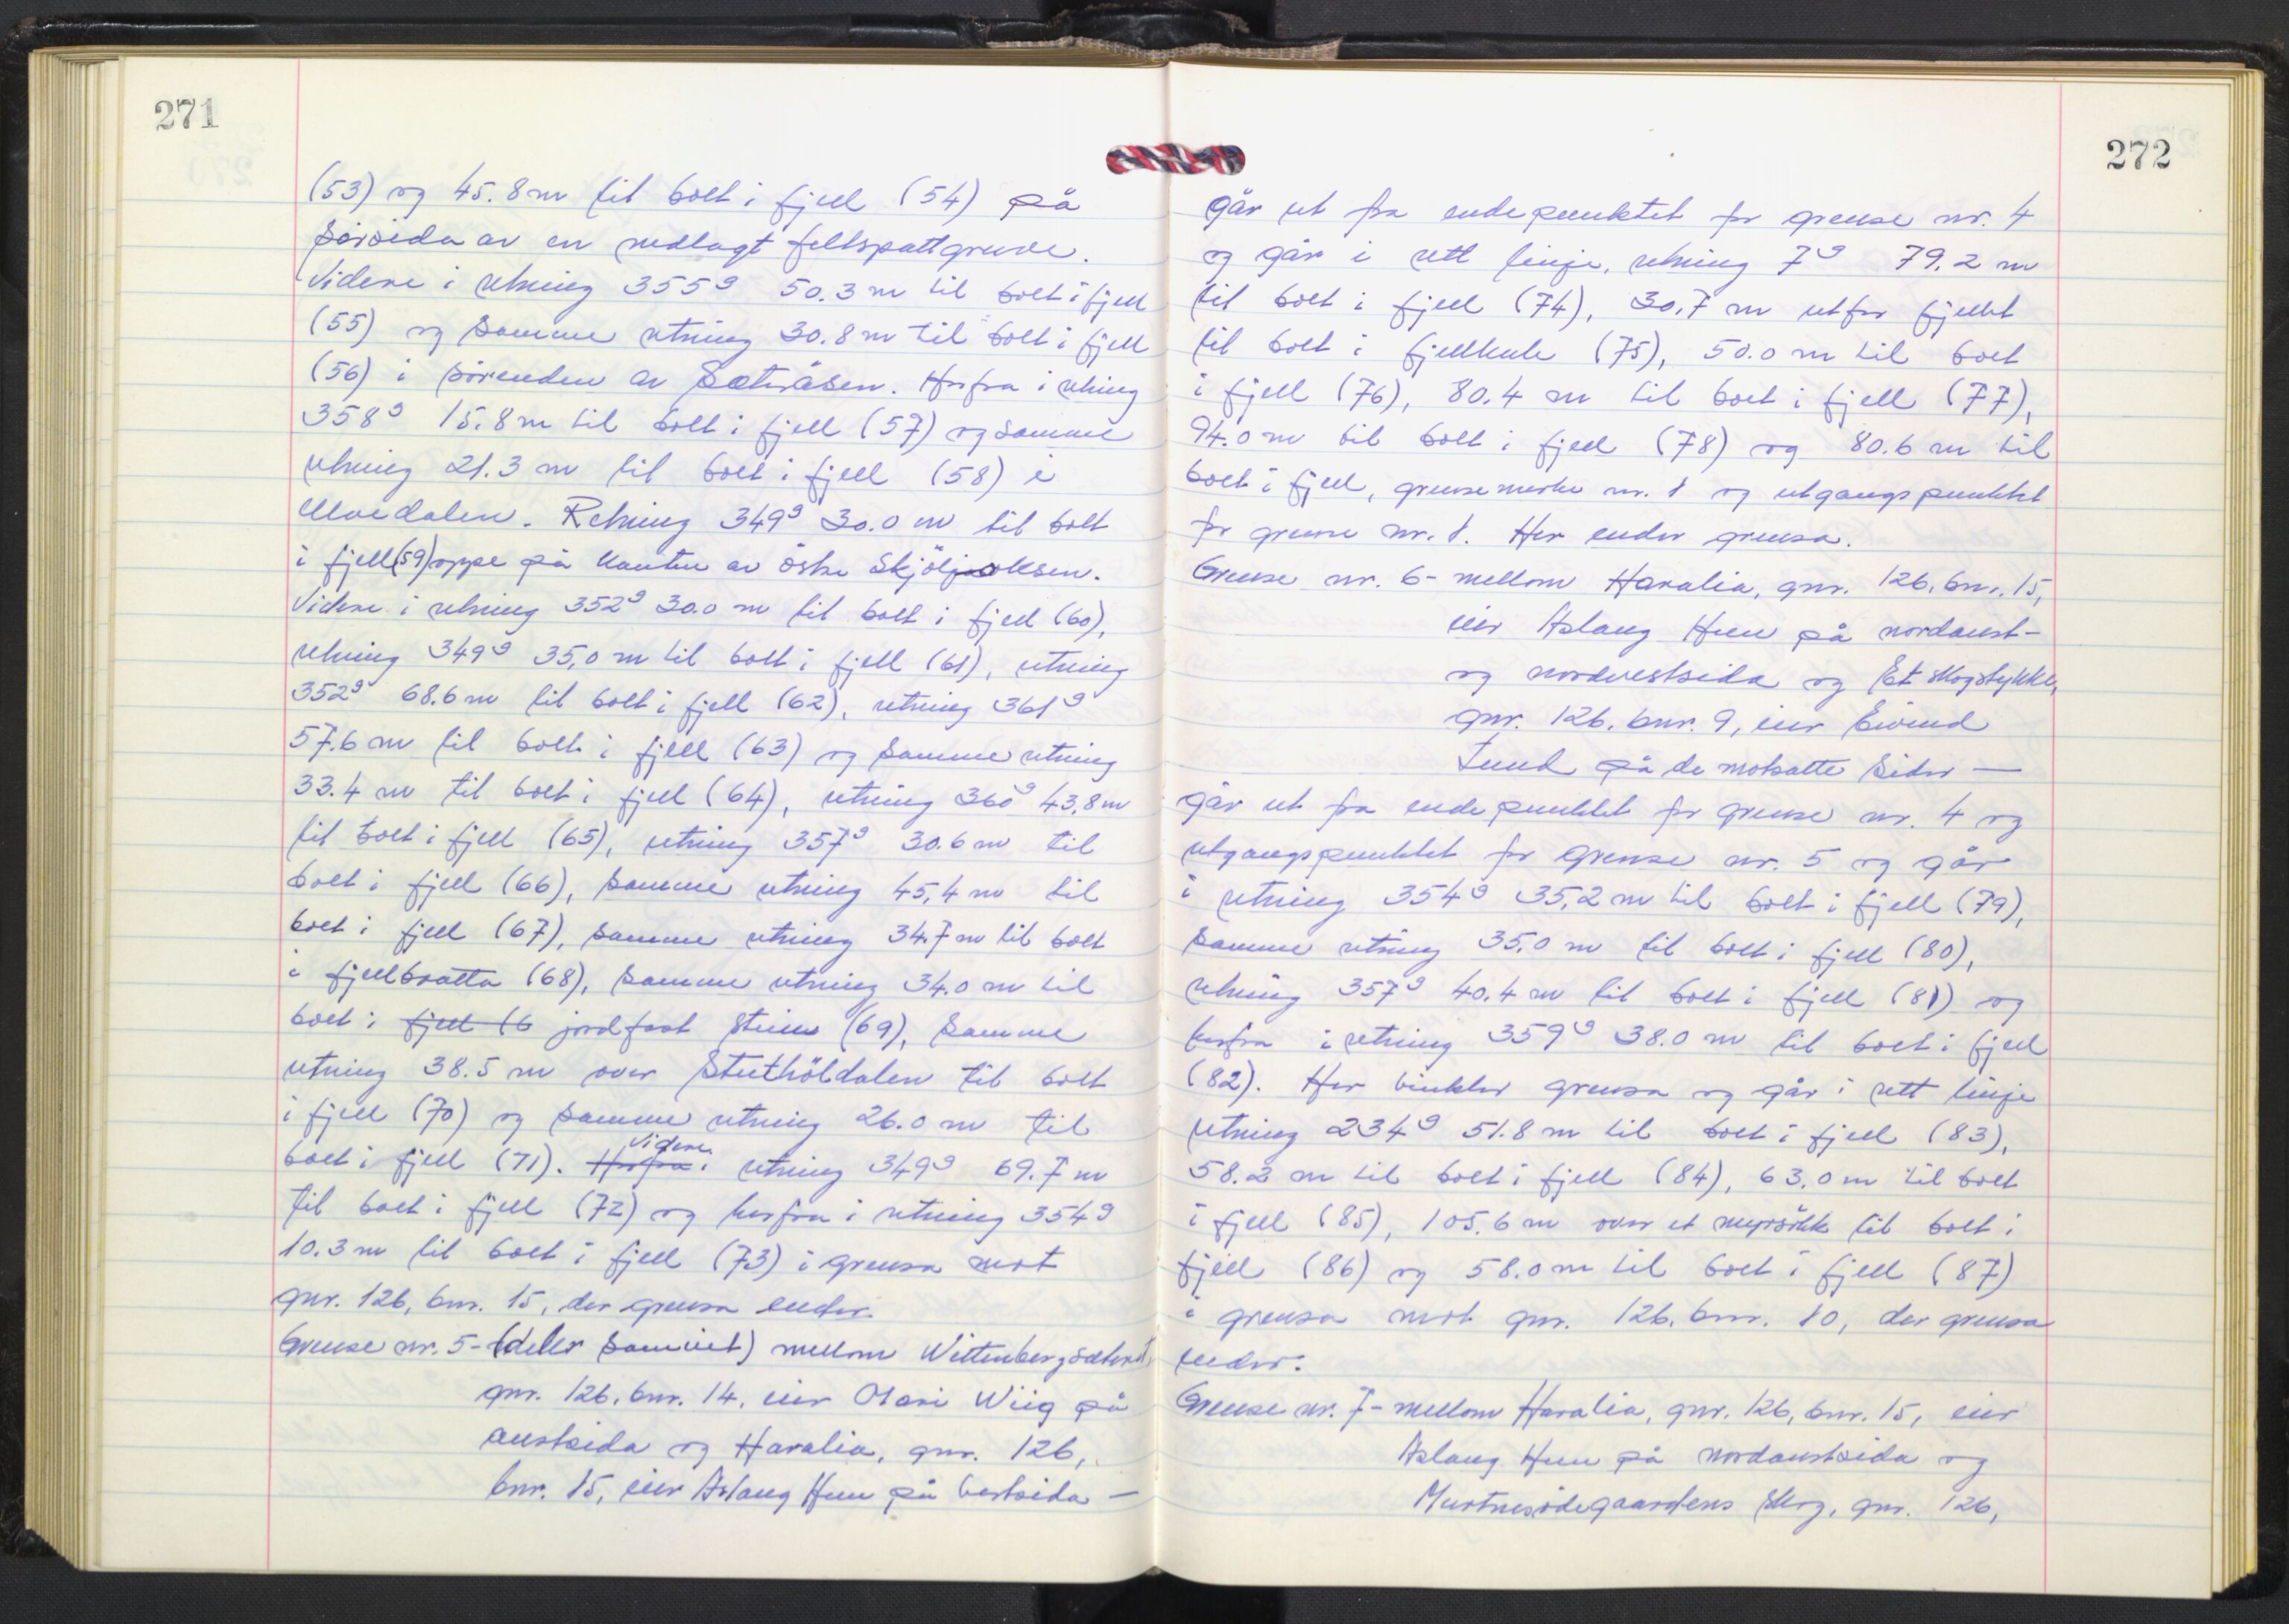 271
(53) og 45.8 m til bolt i fjell (54) på
sørsida av en nedlagt feltspattgruve.
Videre i retning 355g 50.3 m til bolt i fjell
(55) og samme retning 30.8 m til bolt i fjell
(56) i sørenden av Sæteråsen. Herfra i retning
358g 15.8 m til bolt i fjell (57) og samme
retning 21.3 m til bolt i fjell (58) i
Moedalen. Retning 349g 30.0 m til bolt
i fjell (59) oppe på kanten av östre
Videre i retning 352g 30.0 m til bolt i fjell (60),
retning 349g 35,0 m til bolt i fjell (61), retning
352g 68.6 m til bolt i fjell (62), retning 361g
57.6 m til bolt i fjell (63) og samme retning
33.4 m til bolt i fjell (64), retning 360g 43,8 m
til bolt i fjell (65), retning 357g 30.6 m til
bolt i fjell (66), samme retning 45,4 m til
bolt i fjell (67), samme retning 34.7 m til bolt
i fjellbratta (68), samme retning 34.0 m til
bolt i fjell (6 jordfast stein (69), samme
retning 38.5 m over Stuthöldalen til bolt
i fjell (70) og samme retning 26.0 m til
bolt i fjell (71). Herfra Videre i retning 349g 69.7 m
til bolt i fjell (72) og herfra i retning 354g
10.3 m til bolt i fjell (73) i grensa mot
gnr. 126, bnr. 15, der grensa ender.
Grense nr. 5 - (deler sameiet) mellom Wittenbergsæteret,
gnr. 126. bnr. 14, eier Olari Wiig på
austsida og Haralia, gnr. 126,
bnr. 15, eier Aslaug Huu på vestsida —
272
går ut fra endepunktet for grense nr. 4
og går i rett linje, retning 7g 79.2 m
til bolt i fjell (74), 30,7 m utfor fjellet
til bolt i fjellkule (75), 50.0 m til bolt
i fjell (76), 80.4 m til bolt i fjell (77),
94.0 m til bolt i fjell (78) og 80.6 m til
bolt i fjell, grensemerke nr. 1 og utgangspunktet
for grense nr. 1. Her ender grensa.
Grense nr. 6 - mellom Haralia, gnr. 126, bnr. 15,
eier Aslaug Huu på nordaust-
og nordvestsida og Et skogstykke,
gnr. 126. bnr. 9, eier Eivind
Lund på de motsatte sider —
går ut fra endepunktet for grense nr. 4 og
utgangspunktet for grense nr. 5 og går
i retning 354g 35,2 m til bolt i fjell (79),
samme retning 35.0 m til bolt i fjell (80),
retning 357g 40.4 m til bolt i fjell (81) og
herfra i retning 359g 38.0 m til bolt i fjell
(82). Her vinkler grensa og går i rett linje
retning 234g 51.8 m til bolt i fjell (83),
58.2 m til bolt i fjell (84), 63,0 m til bolt
i fjell (85), 105.6 m over et myrsökk til bolt i
fjell (86) og 58.0 m til bolt i fjell (87)
i grensa mot gnr. 126. bnr. 10, der grensa
ender.
Grense nr. 7 - mellom Haralia, gnr. 126, bnr. 15, eier
Aslaug Huu på nordaustsida og
Murtnesödegaardens skog, gnr. 126,